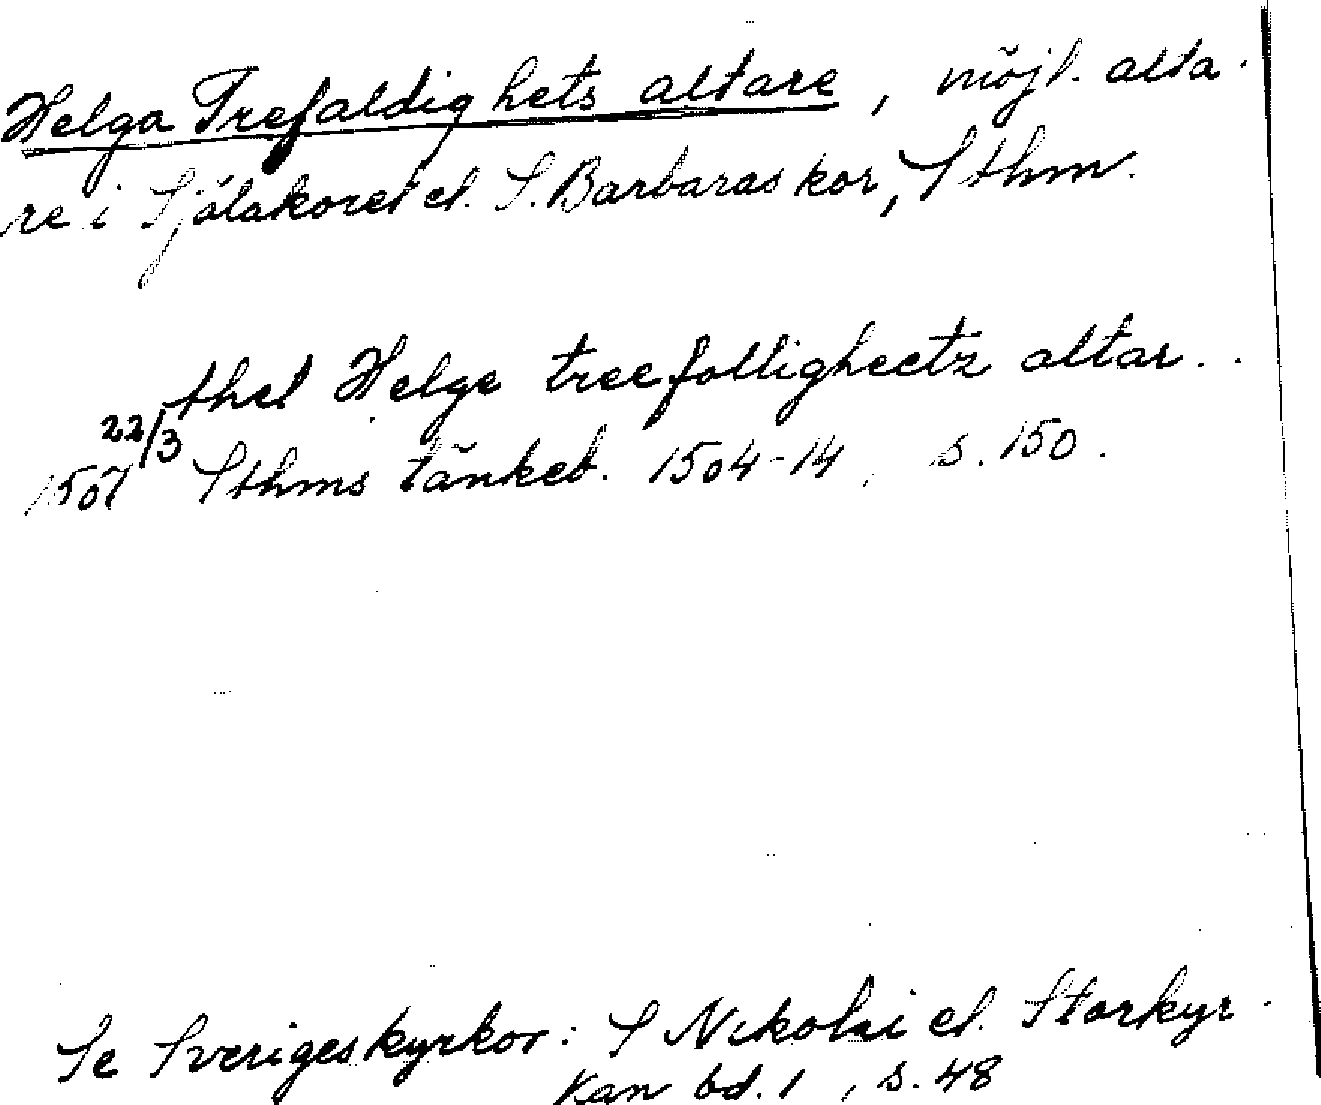 Helga Trefaldighets altare, möjl. alta-
re i Själakoret el. S. Barbaras kor, Sthm.
thet Helge treefolligheetz altar..
22/3
1507 Sthms tänkeb. 1504-14, s. 150.
Se Sverigeskyrkor: S Nikolai el. Storkyr-
kan bd. 1, s. 48